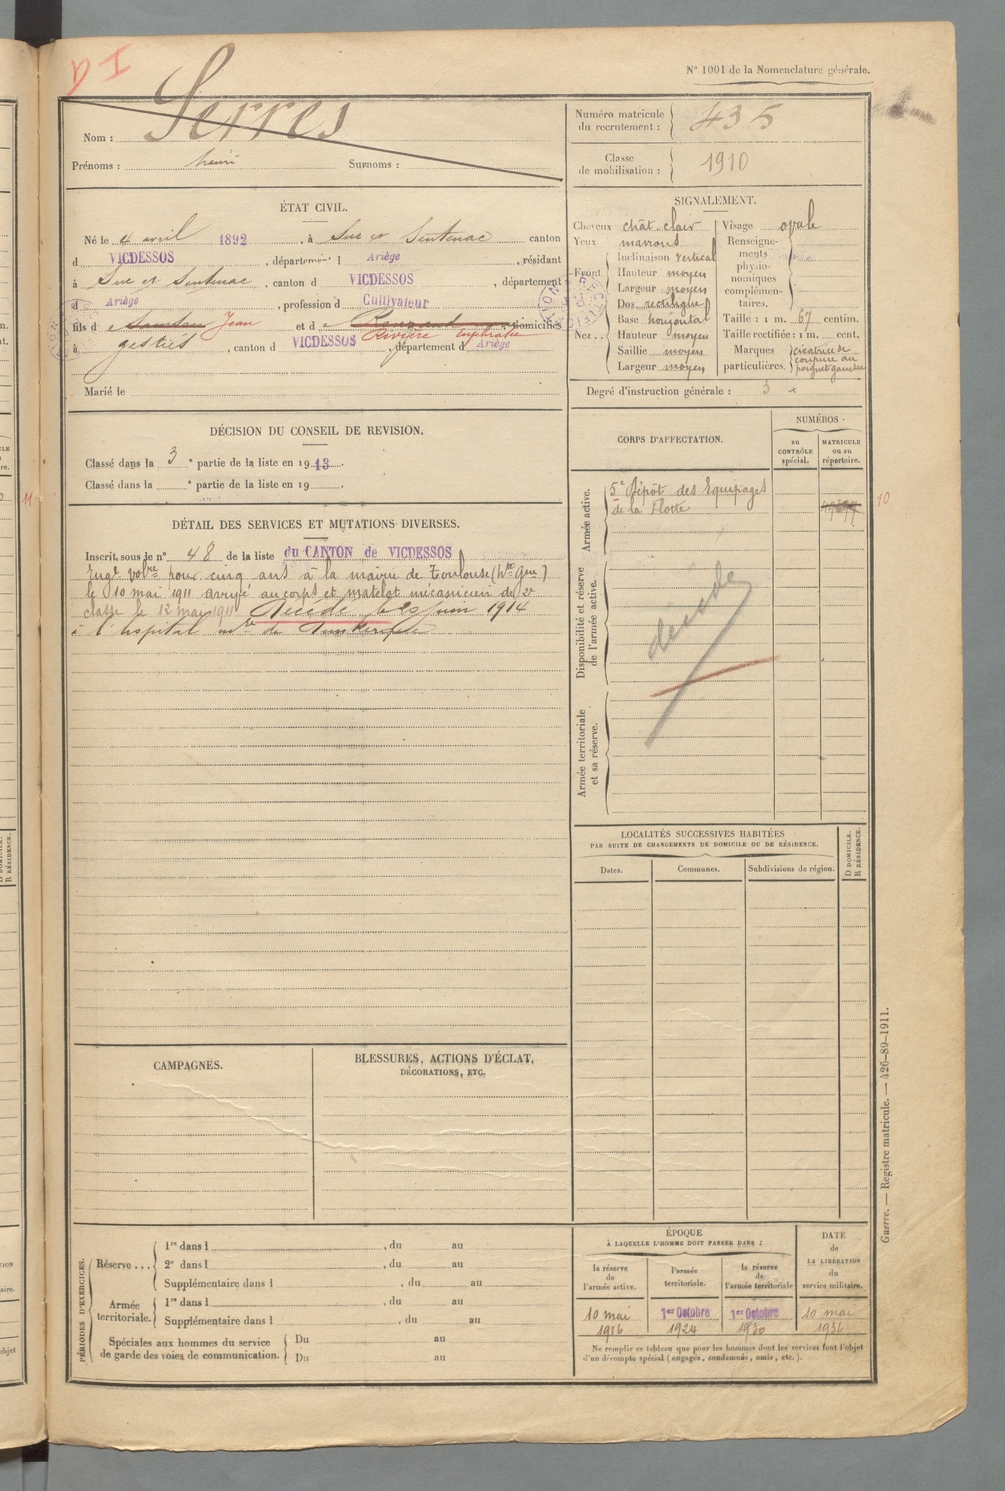 N° 1001 de la Nomenclature générale.
Nom : Serres
Prénoms : henri Surnoms :
Numéro matricule du recrutement : 435
Classe de mobilisation : 1910
ÉTAT CIVIL.
Né le 4 avril 1892, à Suc et Sentenac canton
d VICDESSOS, département d Ariège, résidant
à Suc et Sentenac, canton d VICDESSOS, département
d Ariège, profession d Cultivateur
fils d e Jean et d e Rivière Euphrasie domiciliés
à gestiès, canton d VICDESSOS, département d Ariège
Marié le
SIGNALEMENT.
Cheveux chât. clair
Yeux marrons
Front
Inclinaison vertical
Hauteur moyen
Largeur moyen
Nez..
Dos rectiligne
Base horizontal
Hauteur moyen
Saillie moyen
Largeur moyen
Visage ovale
Renseignements physionomiques complémentaires.
Taille : 1 m. 67 centim.
Taille rectifiée : 1 m. cent.
Marques particulières. cicatrice de coupure au poignet gauche
Degré d'instruction générale : 3
DÉCISION DU CONSEIL DE REVISION.
Classé dans la 3 e partie de la liste en 1913.
Classé dans la e partie de la liste en 19 .
DÉTAIL DES SERVICES ET MUTATIONS DIVERSES.
Inscrit sous le n° 48 de la liste du CANTON de VICDESSOS
Engé volre pour cinq ans à la mairie de Toulouse (Hte Gne)
le 10 mai 1911 arrivé au corps et matelot mécanicien de 2e
classe le 12 mai 1911 Décédé le juin 1914
à l'hopital mre de
CORPS D'AFFECTATION.
NUMÉROS
au CONTRÔLE spécial.
MATRICULE ou au répertoire.
Armée active.
5e Dépôt des Equipages
de la Flotte
Disponibilité et réserve de l'armée active.
décédé
Armée territoriale et sa réserve.
LOCALITÉS SUCCESSIVES HABITÉES
PAR SUITE DE CHANGEMENTS DE DOMICILE OU DE RÉSIDENCE.
D DOMICILE.
R RÉSIDENCE.
Dates. Communes. Subdivisions de région.
CAMPAGNES.
BLESSURES, ACTIONS D'ÉCLAT,
DÉCORATIONS, ETC.
PÉRIODES D'EXERCICES.
Réserve...
1re dans l , du au
2e dans l , du au
Supplémentaire dans l , du au
Armée territoriale.
1re dans l , du au
Supplémentaire dans l , du au
Spéciales aux hommes du service de garde des voies de communication.
Du au
Du au
ÉPOQUE
À LAQUELLE L'HOMME DOIT PASSER DANS :
la réserve de l'armée active.
l'armée territoriale.
la réserve de l'armée territoriale
DATE de LA LIBÉRATION du service militaire.
10 mai 1916
1er Octobre 1924
1er Octobre 1930
10 mai 1936
Ne remplir ce tableau que pour les hommes dont les services font l'objet
d'un décompte spécial (engagés, condamnés, omis, etc.).
Guerre. — Registre matricule. — 426-89-1911.